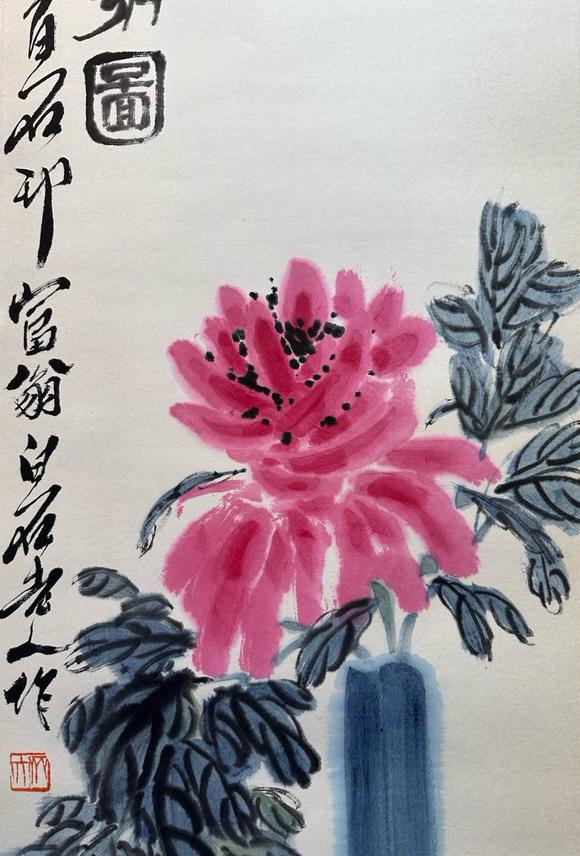 圖
百石印富翁白石老人作